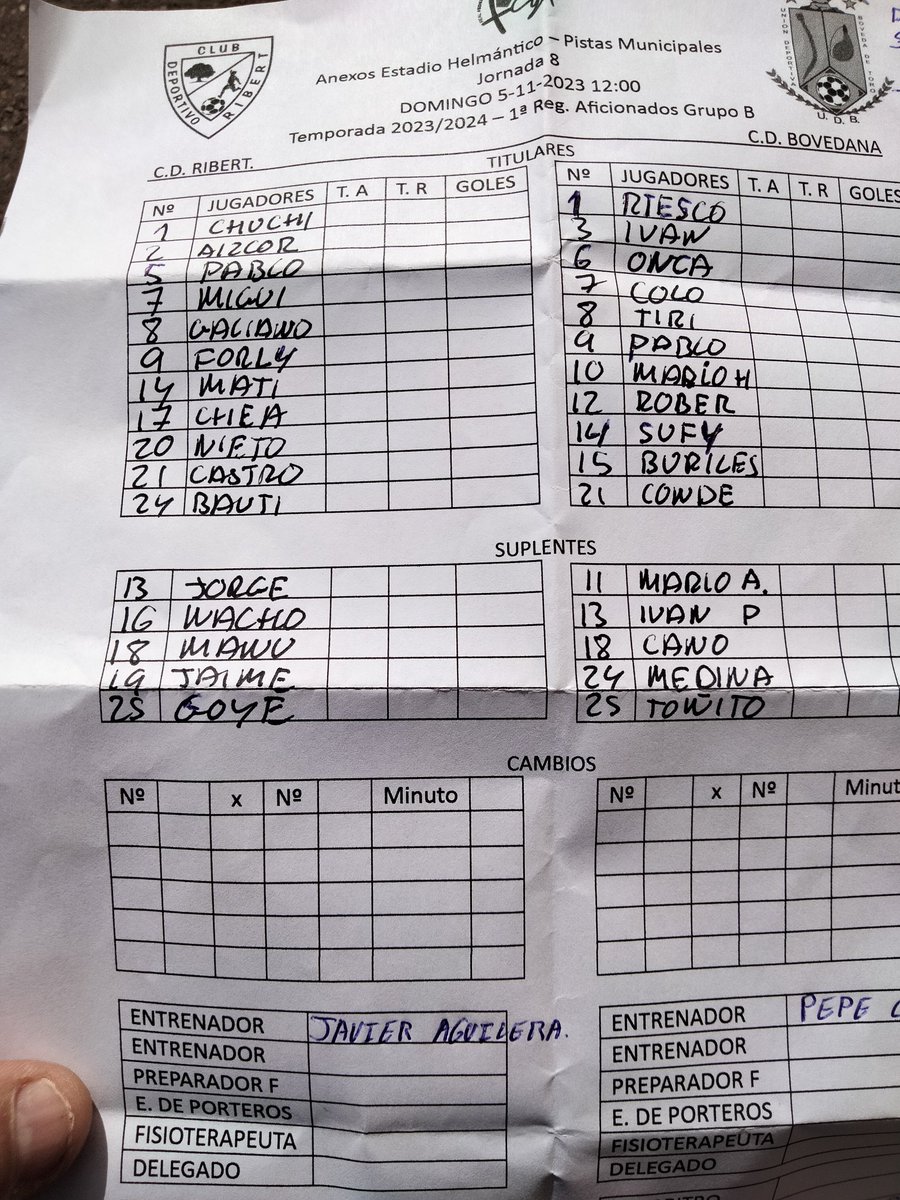 CLUB DEPORTIVO RIBERT
UNION DEPORTIVA BOVEDA DE TORO
U. D. B.
Anexos Estadio Helmántico – Pistas Municipales
Jornada 8
DOMINGO 5-11-2023 12:00
Temporada 2023/2024 – 1ª Reg. Aficionados Grupo B
C.D. RIBERT.
C.D. BOVEDANA
TITULARES
Nº JUGADORES T. A T. R GOLES
1 CHUCHI
2 AIZCOR
5 PABLO
7 MIGUI
8 GALIANO
9 FORLY
14 MATI
17 CHEA
20 NIETO
21 CASTRO
24 BAUTI
Nº JUGADORES T. A T. R GOLES
1 RIESCO
3 IVAN
6 ONCA
7 COLO
8 TIRI
9 PABLO
10 MARIO H
12 ROBER
14 SUFY
15 BURILES
21 CONDE
SUPLENTES
13 JORGE
16 WACHO
18 MANU
19 JAIME
25 GOYE
11 MARIO A.
13 IVAN P
18 CANO
24 MEDINA
25 TOÑITO
CAMBIOS
Nº x Nº Minuto
Nº x Nº
ENTRENADOR JAVIER AGUILERA.
ENTRENADOR
PREPARADOR F
E. DE PORTEROS
FISIOTERAPEUTA
DELEGADO
ENTRENADOR PEPE
ENTRENADOR
PREPARADOR F
E. DE PORTEROS
FISIOTERAPEUTA
DELEGADO